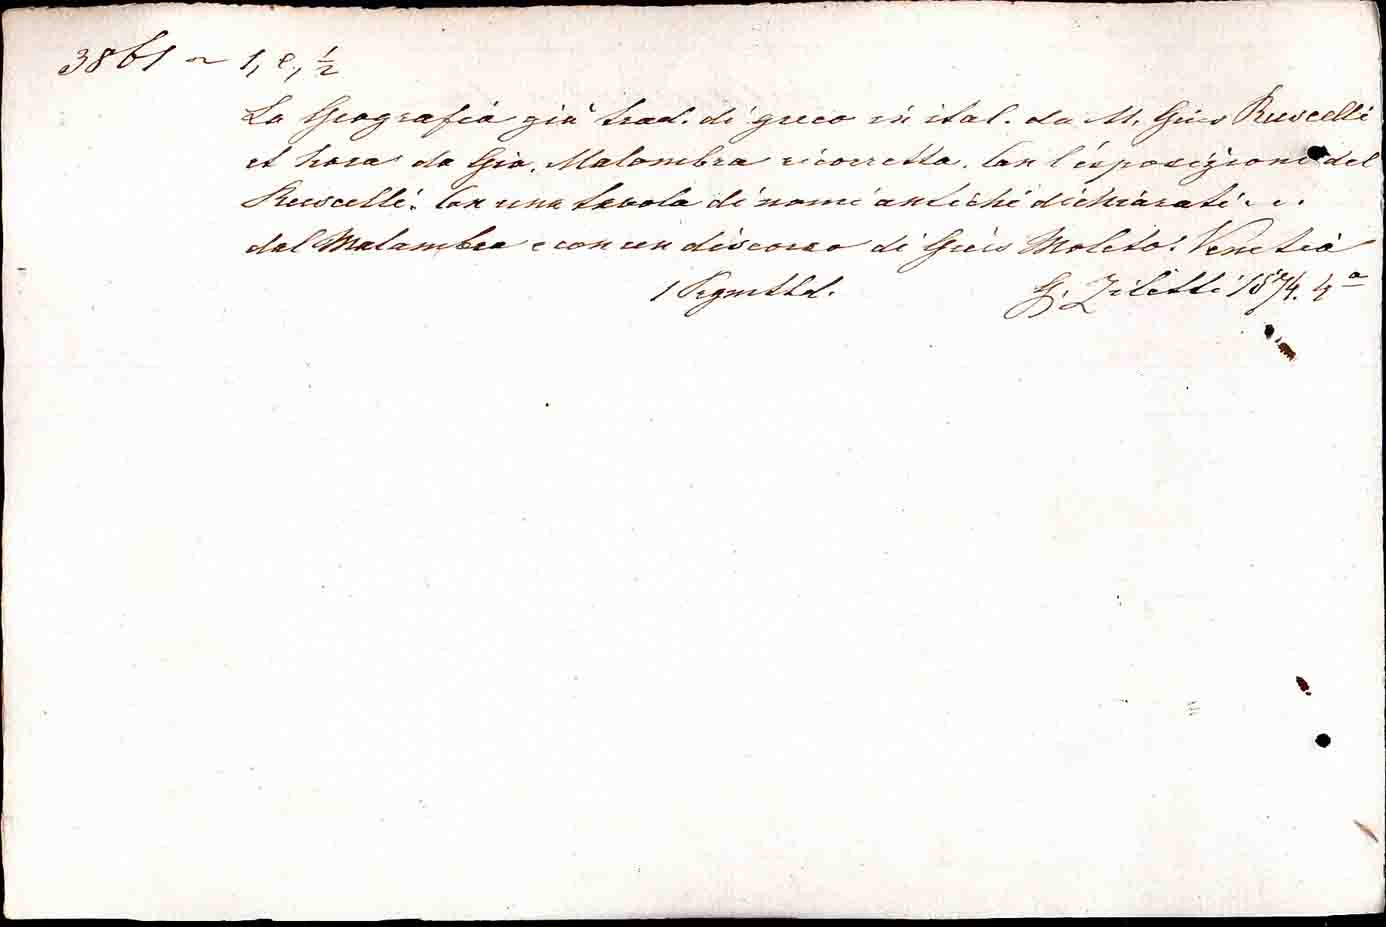 3861 ~ 1, e, ½
La Geografia già trad. di greco in ital. da M. Gio Ruscelli
et hora da Gio. Malombra ricorretta. Con l'esposizioni del
Ruscelli. Con una tavola di nomi antichi dichiarati . .
dal Malombra e con un discorso di Gius Moleto. Venetia
1 Pgmtbd. G. Ziletti 1574. 4º